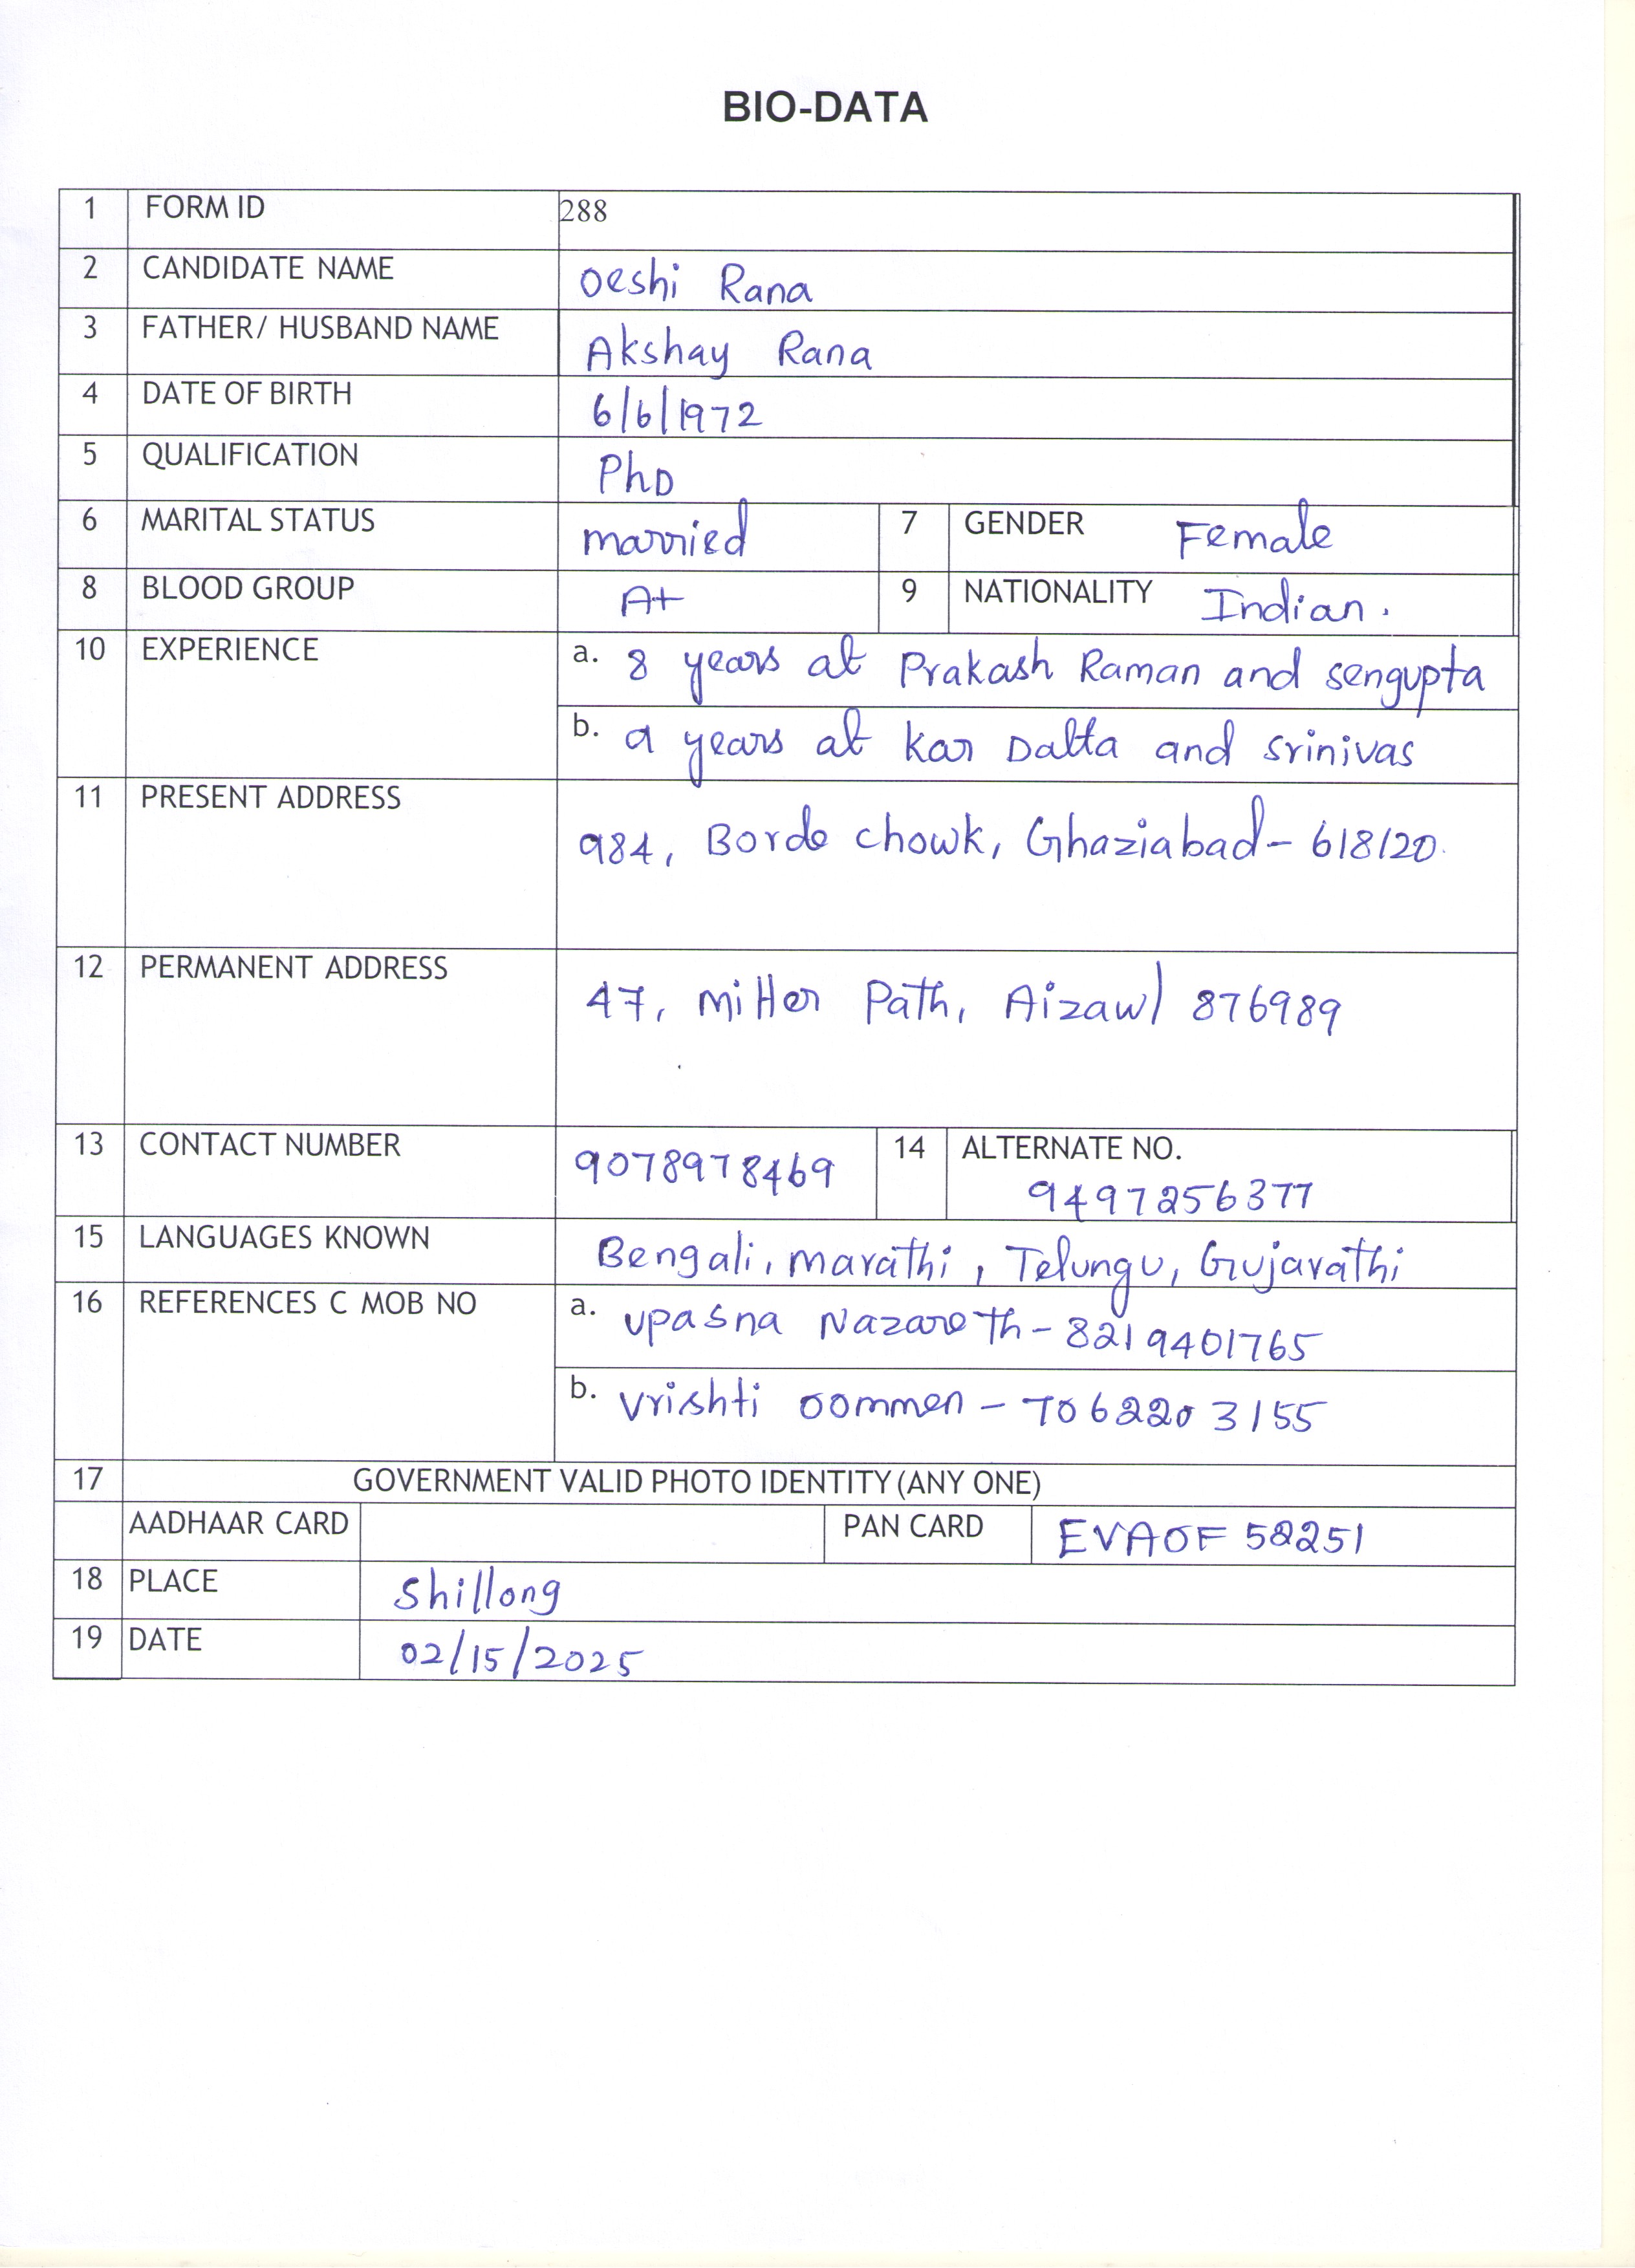 BIO-DATA
1 FORM ID 288
2 CANDIDATE NAME Oeshi Rana
3 FATHER/ HUSBAND NAME Akshay Rana
4 DATE OF BIRTH 6/6/1972
5 QUALIFICATION PhD
6 MARITAL STATUS married 7 GENDER Female
8 BLOOD GROUP A+ 9 NATIONALITY Indian.
10 EXPERIENCE a. 8 years at Prakash Raman and sengupta
b. 9 years at kar Datta and srinivas
11 PRESENT ADDRESS
984, Borde chowk, Ghaziabad- 618120
12 PERMANENT ADDRESS
47, mitter Path, Aizawl 876989
13 CONTACT NUMBER 9078978469 14 ALTERNATE NO.
9497256377
15 LANGUAGES KNOWN Bengali, marathi, Telungu, Gujarathi
16 REFERENCES C MOB NO a. upasna Nazareth - 8219401765
b. vrishti oommen - 7062203155
17 GOVERNMENT VALID PHOTO IDENTITY (ANY ONE)
AADHAAR CARD PAN CARD EVAOF 52251
18 PLACE Shillong
19 DATE 02/15/2025